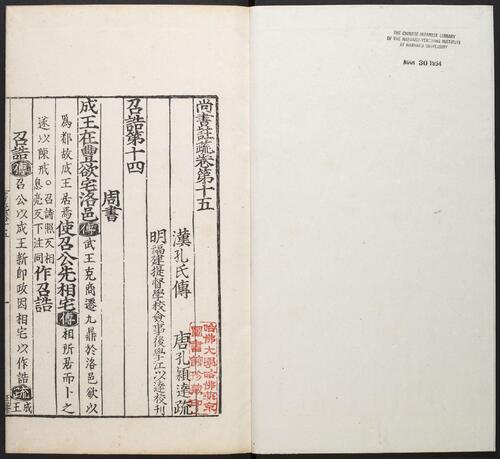 THE CHINESE JAPANESE LIBRARY
OF THE HARVARD-YENCHING INSTITUTE
AT HARVARD UNIVERSITY
MAR 30 1954
尚書註疏卷第十五
漢孔氏傳 唐孔穎達疏
明福建提督學校僉事後學江以達校刊
哈佛大學哈佛燕京
圖書館珍藏印
召誥第十四
周書
成王在豐欲宅洛邑傳武王克商遷九鼎於洛邑欲以
為都故成王居焉使召公先相宅傳相所居而卜之
遂以陳戒○召詩照反相
息亮反下注同作召誥
召誥傳召公以成王新即政因相宅以作誥疏成王